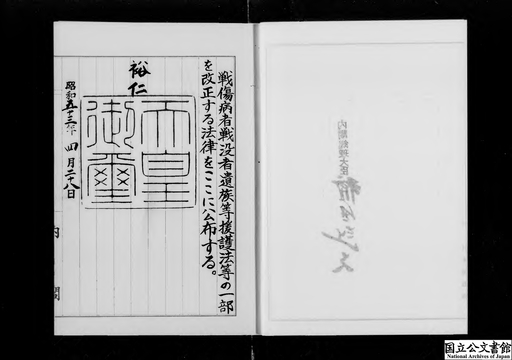 戦傷病者戦没者遺族等援護法等の一部
を改正する法律をここに公布する。
裕仁
天皇
御璽
昭和五十三年四月二十八日
内閣
内閣総理大臣
国立公文書館
National Archives of Japan